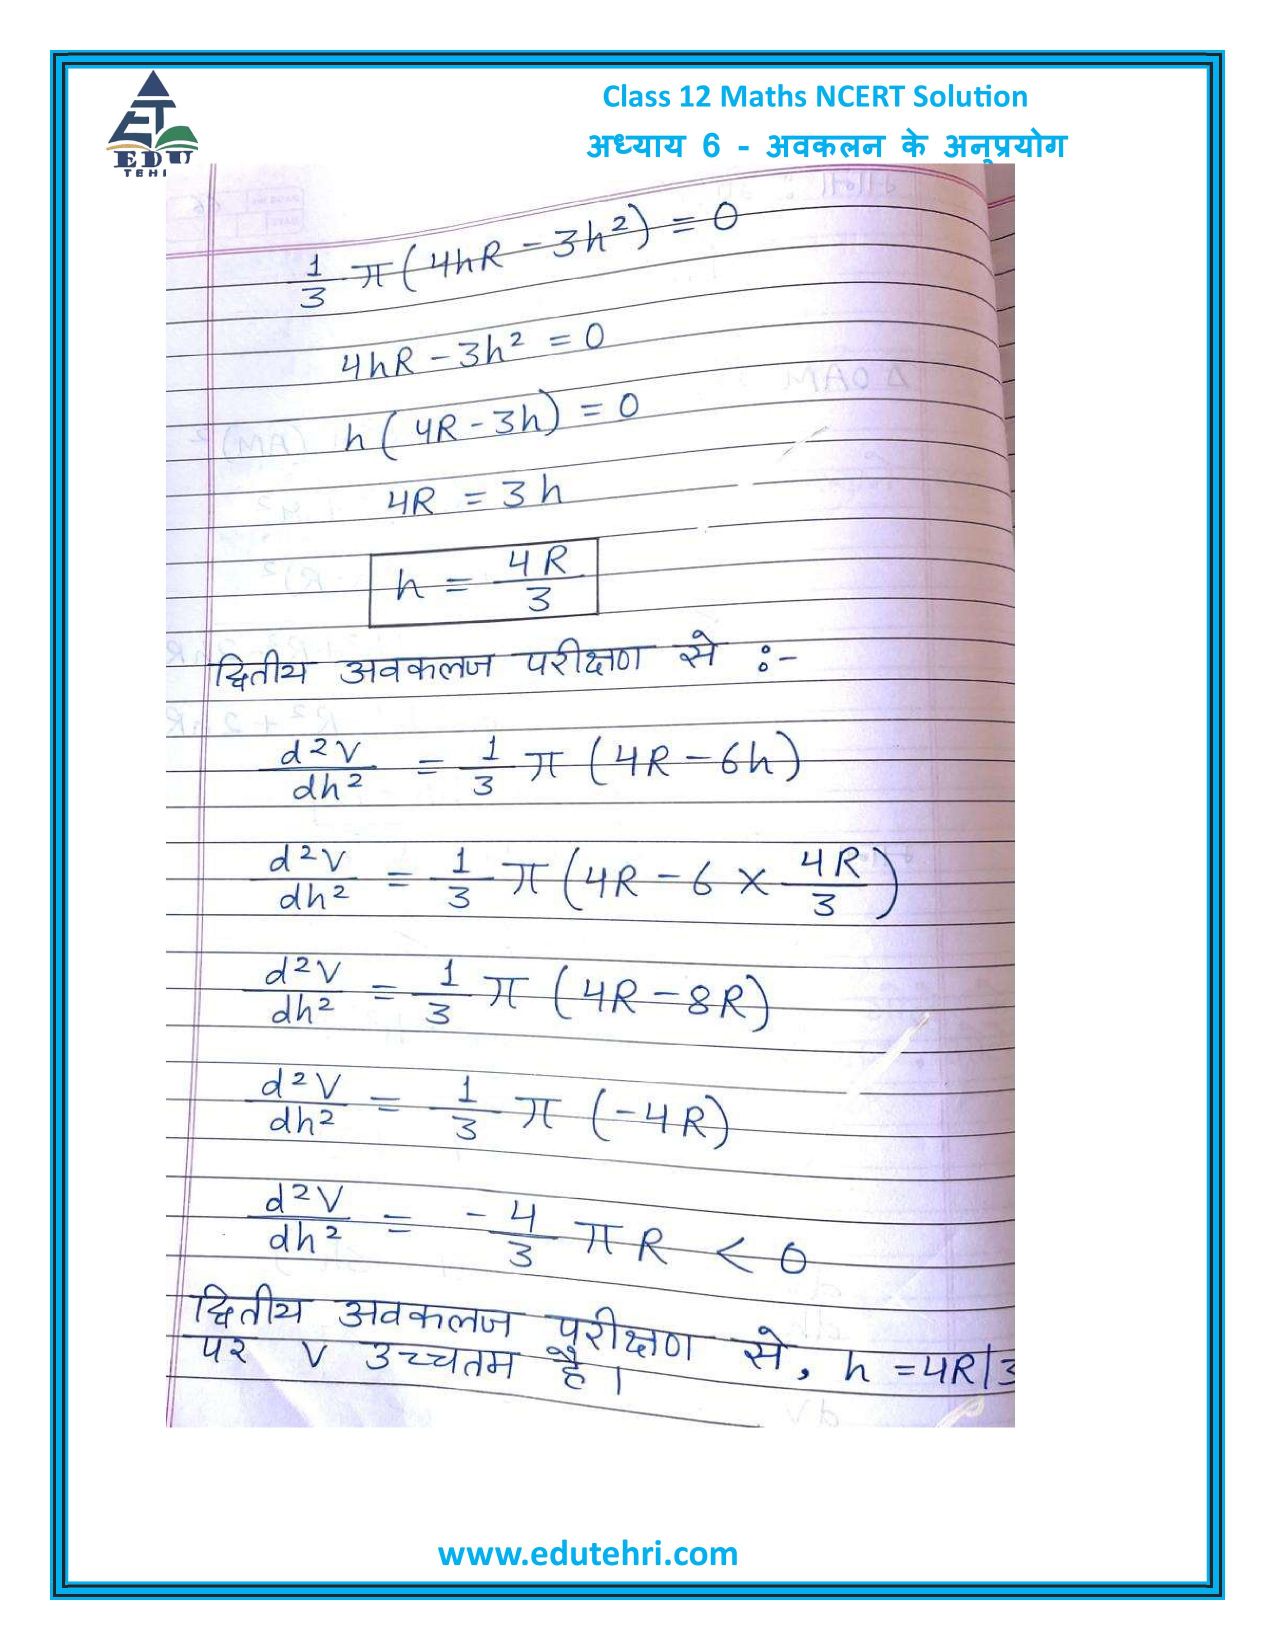 EDU
TEHRI
Class 12 Maths NCERT Solution
अध्याय 6 - अवकलन के अनुप्रयोग
1/3 π(4hR - 3h²) = 0
4hR - 3h² = 0
h(4R - 3h) = 0
4R = 3h
h = 4R/3
द्वितीय अवकलज परीक्षण से :-
d²V/dh² = 1/3 π (4R - 6h)
d²V/dh² = 1/3 π (4R - 6 × 4R/3)
d²V/dh² = 1/3 π (4R - 8R)
d²V/dh² = 1/3 π (-4R)
d²V/dh² = -4/3 πR < 0
द्वितीय अवकलज परीक्षण से, h = 4R/3
पर V उच्चतम है।
www.edutehri.com